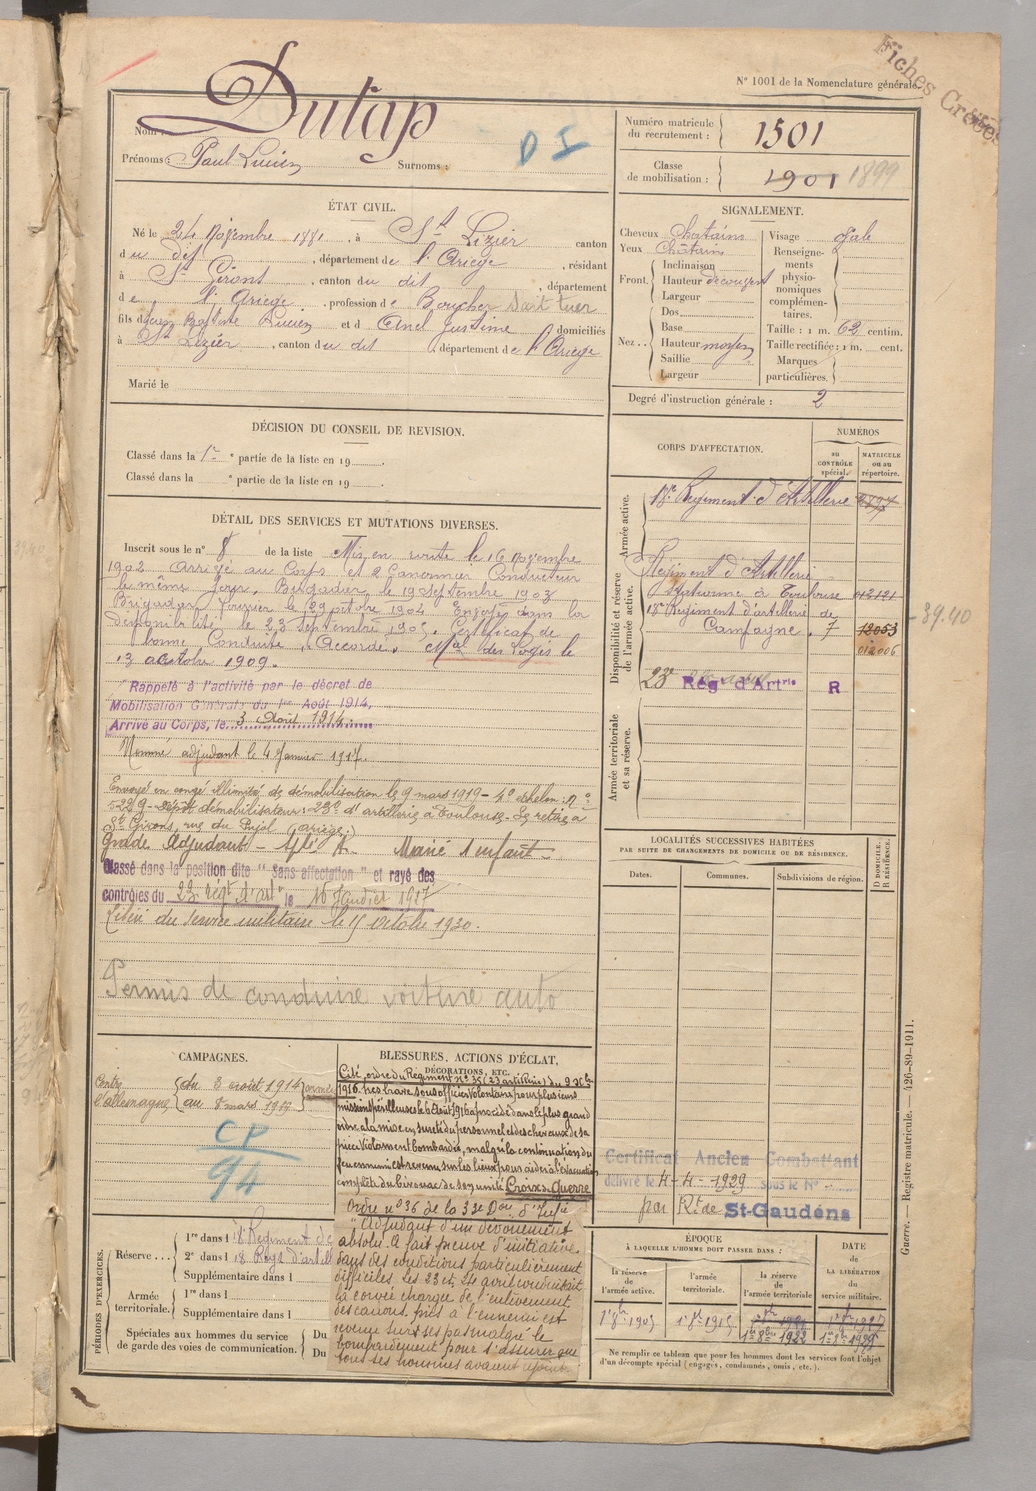 Fiches Créées
N° 1001 de la Nomenclature générale.
Nom :
Dutap
Prénoms : Paul Lucien
Surnoms :
D I
Numéro matricule du recrutement : 1501
Classe de mobilisation : 1901 1899
ÉTAT CIVIL.
Né le 24 Novembre 1881, à St Lizier canton
du dit, département de l'Ariège, résidant
à St Girons, canton du dit, département
de l'Ariège, profession de Boucher sait tuer
fils de Jean Baptiste Lucien et d Anel Justine domiciliés
à St Lizier, canton du dit, département de l'Ariège
Marié le
SIGNALEMENT.
Cheveux Chatains
Yeux Châtains
Front.
Inclinaison
Hauteur découvert
Largeur
Nez..
Dos
Base
Hauteur moyen
Saillie
Largeur
Visage ovale
Renseignements physionomiques complémentaires.
Taille : 1 m. 62 centim.
Taille rectifiée : 1 m. cent.
Marques particulières.
Degré d'instruction générale : 2
DÉCISION DU CONSEIL DE REVISION.
Classé dans la 1re partie de la liste en 19
Classé dans la e partie de la liste en 19
DÉTAIL DES SERVICES ET MUTATIONS DIVERSES.
Inscrit sous le n° 8 de la liste Mis en route le 16 Novembre
1902 Arrivé au Corps et 2e Canonnier Conducteur
le même jour, Brigadier le 19 Septembre 1903
Brigadier Fourrier le 29 octobre 1904 Envoyé dans la
disponibilité le 23 Septembre 1905. Certificat de
bonne Conduite "Accordé". Mal des Logis le
13 octobre 1909.
Rappelé à l'activité par le décret de
Mobilisation Générale du 1er Août 1914,
Arrivé au Corps, le 3 Août 1914
Nommé adjudant le 4 Janvier 1917.
Envoyé en congé illimité de démobilisation le 9 mars 1919 - 4e échelon : n°
5229 - Dépôt démobilisateur : 23e d'artillerie à Toulouse - Se retire à
St Girons, rue du Pujol (Ariège)
Grade Adjudant - Marié 1 enfant -
Classé dans la position dite "Sans affectation" et rayé des
contrôles du 23 régt d'art le 1927
Libéré du Service militaire le 15 octobre 1930.
Permis de conduire voiture auto
CORPS D'AFFECTATION.
NUMÉROS
au CONTRÔLE spécial.
MATRICULE ou au répertoire.
Armée active.
18e Régiment d'Artillerie
Disponibilité et réserve de l'armée active.
Régiment d'Artillerie
Stationné à Toulouse 012121
18e Régiment d'artillerie de
Campagne. 7 12053
012006
39.40
23e Rég d'Artrie R
Armée territoriale et sa réserve.
LOCALITÉS SUCCESSIVES HABITÉES
PAR SUITE DE CHANGEMENTS DE DOMICILE OU DE RÉSIDENCE.
Dates.
Communes.
Subdivisions de région.
D DOMICILE.
R RÉSIDENCE.
Certificat Ancien Combattant
délivré le 4-4-1929 sous le N°
par Rt de St-Gaudens
CAMPAGNES.
Contre l'allemagne
du 3 août 1914
au 8 mars 1919
armée
CP
94
BLESSURES, ACTIONS D'ÉCLAT, DÉCORATIONS, ETC.
Cité, ordre du Régiment n° 35 (23 artillerie) du 9 Xbre
1916. Très brave sous officier Volontaire pour plusieurs
missions périlleuses le 6 Août 1916 a procédé dans le plus grand
ordre à la mise en sureté du personnel et des chevaux de sa
pièce violament bombardée, malgré la continuation du
feu ennemi est revenu sur les lieux pour aider à l'évacuation
complète du bivouac de son unité Croix de Guerre
Ordre n° 36 de la 33e Don d'Infie
"Adjudant d'un dévouement
absolu. A fait preuve d'initiative
dans des conditions particulièrement
difficiles. Les 23 et 24 avril conduisait
la corvée chargée de l'enlèvement
des canons près à l'ennemi est
revenu sur ses pas malgré le
bombardement pour s'assurer que
tous ses hommes avaient rejoint
PÉRIODES D'EXERCICES.
Réserve...
1re dans l 18 Régiment de
2e dans l 18 Régt d'artill
Supplémentaire dans l
Armée territoriale.
1re dans l
Supplémentaire dans l
Spéciales aux hommes du service de garde des voies de communication.
Du
Du
ÉPOQUE
À LAQUELLE L'HOMME DOIT PASSER DANS :
la réserve de l'armée active.
l'armée territoriale.
la réserve de l'armée territoriale
DATE de LA LIBÉRATION du service militaire.
1er 8bre 1905
1er 8bre 1915
1er 8bre 1922
Ne remplir ce tableau que pour les hommes dont les services font l'objet
d'un décompte spécial (engagés, condamnés, omis, etc.).
Guerre. — Registre matricule. — 426-89-1911.